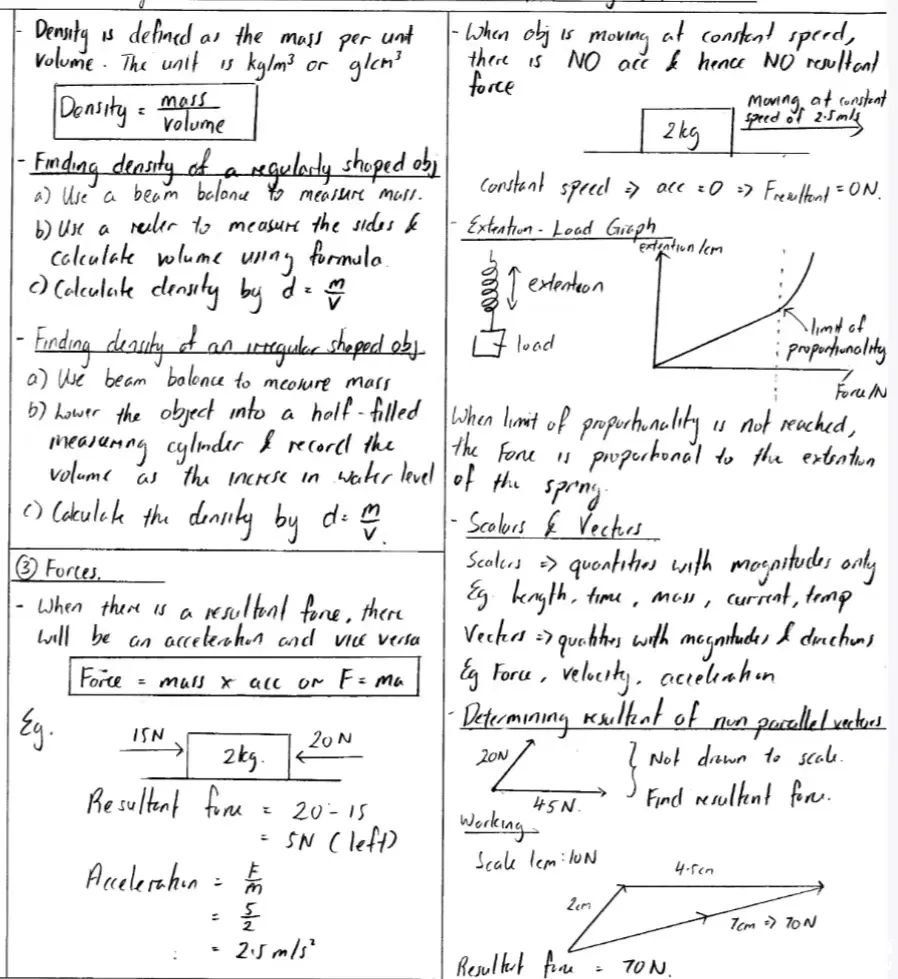 - Density is defined as the mass per unit
volume. The unit is kg/m³ or g/cm³
Density = mass
volume
- Finding density of a regularly shaped obj
a) Use a beam balance to measure mass.
b) Use a ruler to measure the sides &
calculate volume using formula.
c) Calculate density by d = m/v
- Finding density of an irregular shaped obj.
a) Use beam balance to measure mass
b) Lower the object into a half-filled
measuring cylinder & record the
volume as the increse in water level
c) Calculate the density by d = m/v.
③ Forces.
- When there is a resultant force, there
will be an acceleration and vice versa
Force = mass x acc or F = ma
Eg.
15N
2kg.
20N
Resultant force = 20 - 15
= 5N (left)
Acceleration = F/m
= 5/2
= 2.5 m/s²
- When obj is moving at constant speed,
there is NO acc & hence NO resultant
force
2kg
Moving at constant
speed of 2.5m/s
Constant speed => acc = 0 => Fresultant = 0N.
- Extention - Load Graph
extention
load
extention/cm
limit of
proportionality
Force/N
When limit of proportionality is not reached,
the Force is proportional to the extention
of the spring.
- Scalars & Vectors
Scalars => quantities with magnitudes only
Eg length, time, mass, current, temp
Vectors => qualities with magnitudes & directions
Eg Force, velocity, acceleration
- Determining resultant of non parallel vectors
20N
45N.
Not drawn to scale.
Find resultant force.
Working
Scale 1cm:10N
4.5cm
2cm
7cm => 70N
Resultant force = 70N.